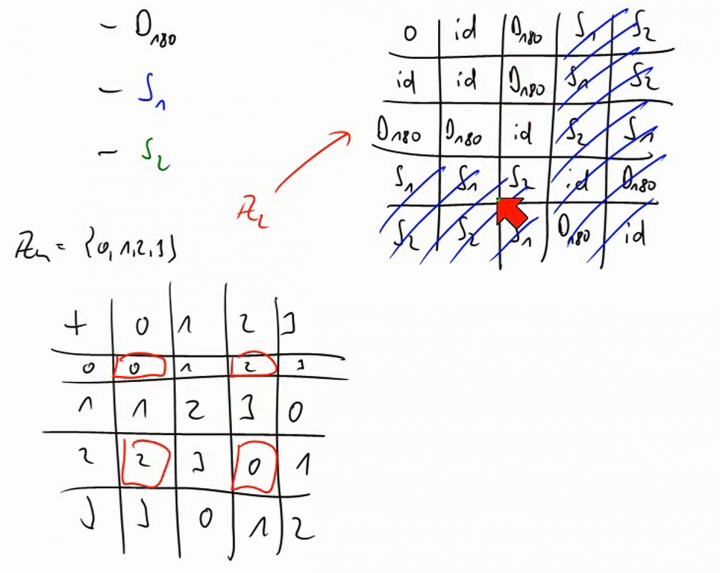 - D180
- S1
- S2
Z2
Z4 = {0, 1, 2, 3}
∘ id D180 S1 S2
id id D180 S1 S2
D180 D180 id S2 S1
S1 S1 S2 id D180
S2 S2 S1 D180 id
+ 0 1 2 3
0 0 1 2 3
1 1 2 3 0
2 2 3 0 1
3 3 0 1 2